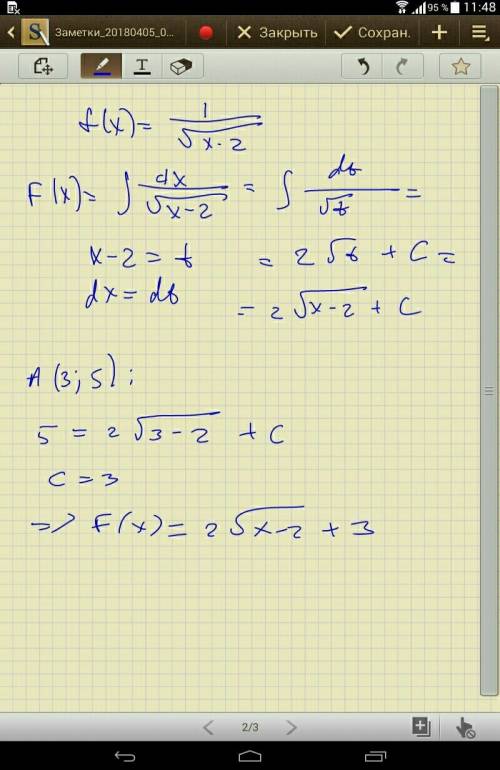 95% 11:48
Заметки_20180405_0... Закрыть Сохран.
f(x) = 1/√(x-2)
F(x) = ∫ dx/√(x-2) = ∫ dt/√t =
x-2 = t = 2√t + C =
dx = dt = 2√(x-2) + C
A(3; 5):
5 = 2√(3-2) + C
C = 3
=> F(x) = 2√(x-2) + 3
2/3